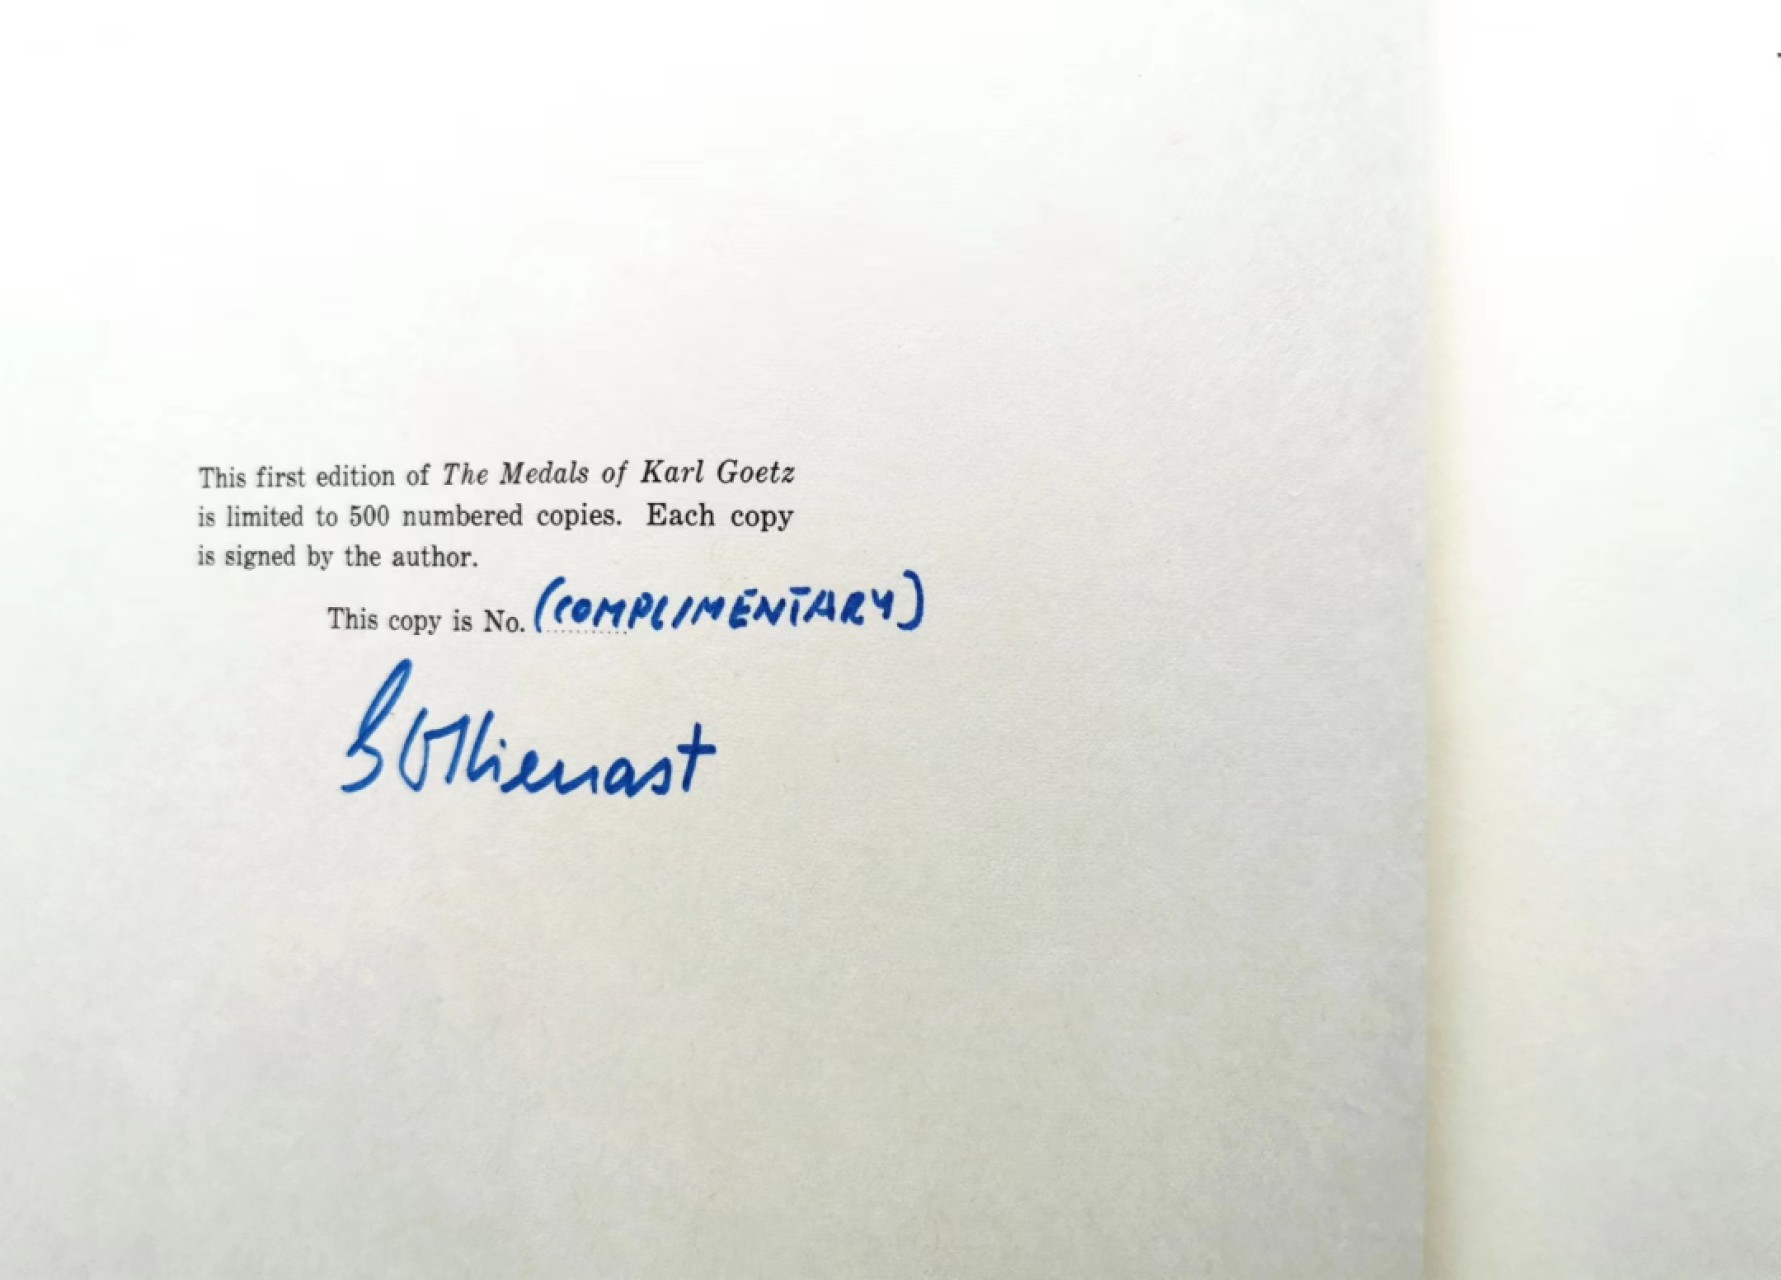 This first edition of The Medals of Karl Goetz
is limited to 500 numbered copies. Each copy
is signed by the author.
This copy is No. (COMPLIMENTARY)
GWKienast